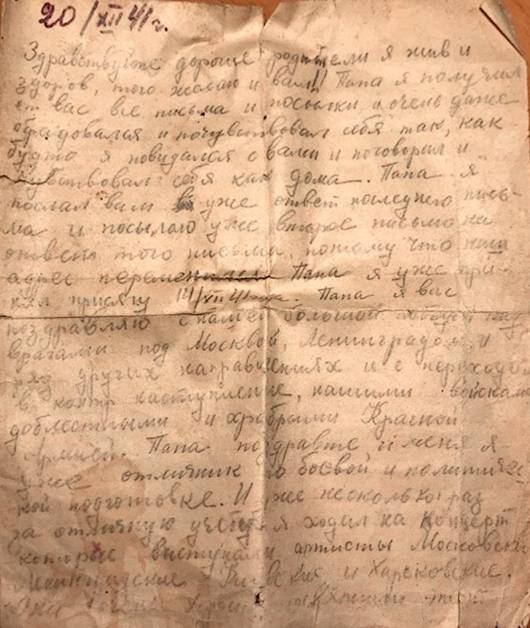 20/XII 41 г.
Здравствуйте дорогие родители я жив и
здоров, того желаю и вам!! Папа я получил
от вас все письма и посылки и очень даже
обрадовался и почувствовал себя так, как
будто я повидался с вами и поговорил и
чувствовал себя как дома. Папа я
послал вам уже ответ последнего пись-
ма и посылаю уже второе письмо на
ответ того письма, потому что наш
адрес переменился Папа я уже при-
нял присягу 14/XII 41 года. Папа я вас
поздравляю с нашей большой победой над
врагами под Москвой, Ленинградом и
ряд других направлениях и с переходом
в контр наступление, нашими войсками
доблестными и храбрыми Красной
Армией. Папа поздравте и меня я
уже отличник по боевой и политичес
кой подготовке. И уже несколько раз
за отличную учебу я ходил на концерт
которые выступали артисты Московские
Ленинградские Киевские и Харьковские.